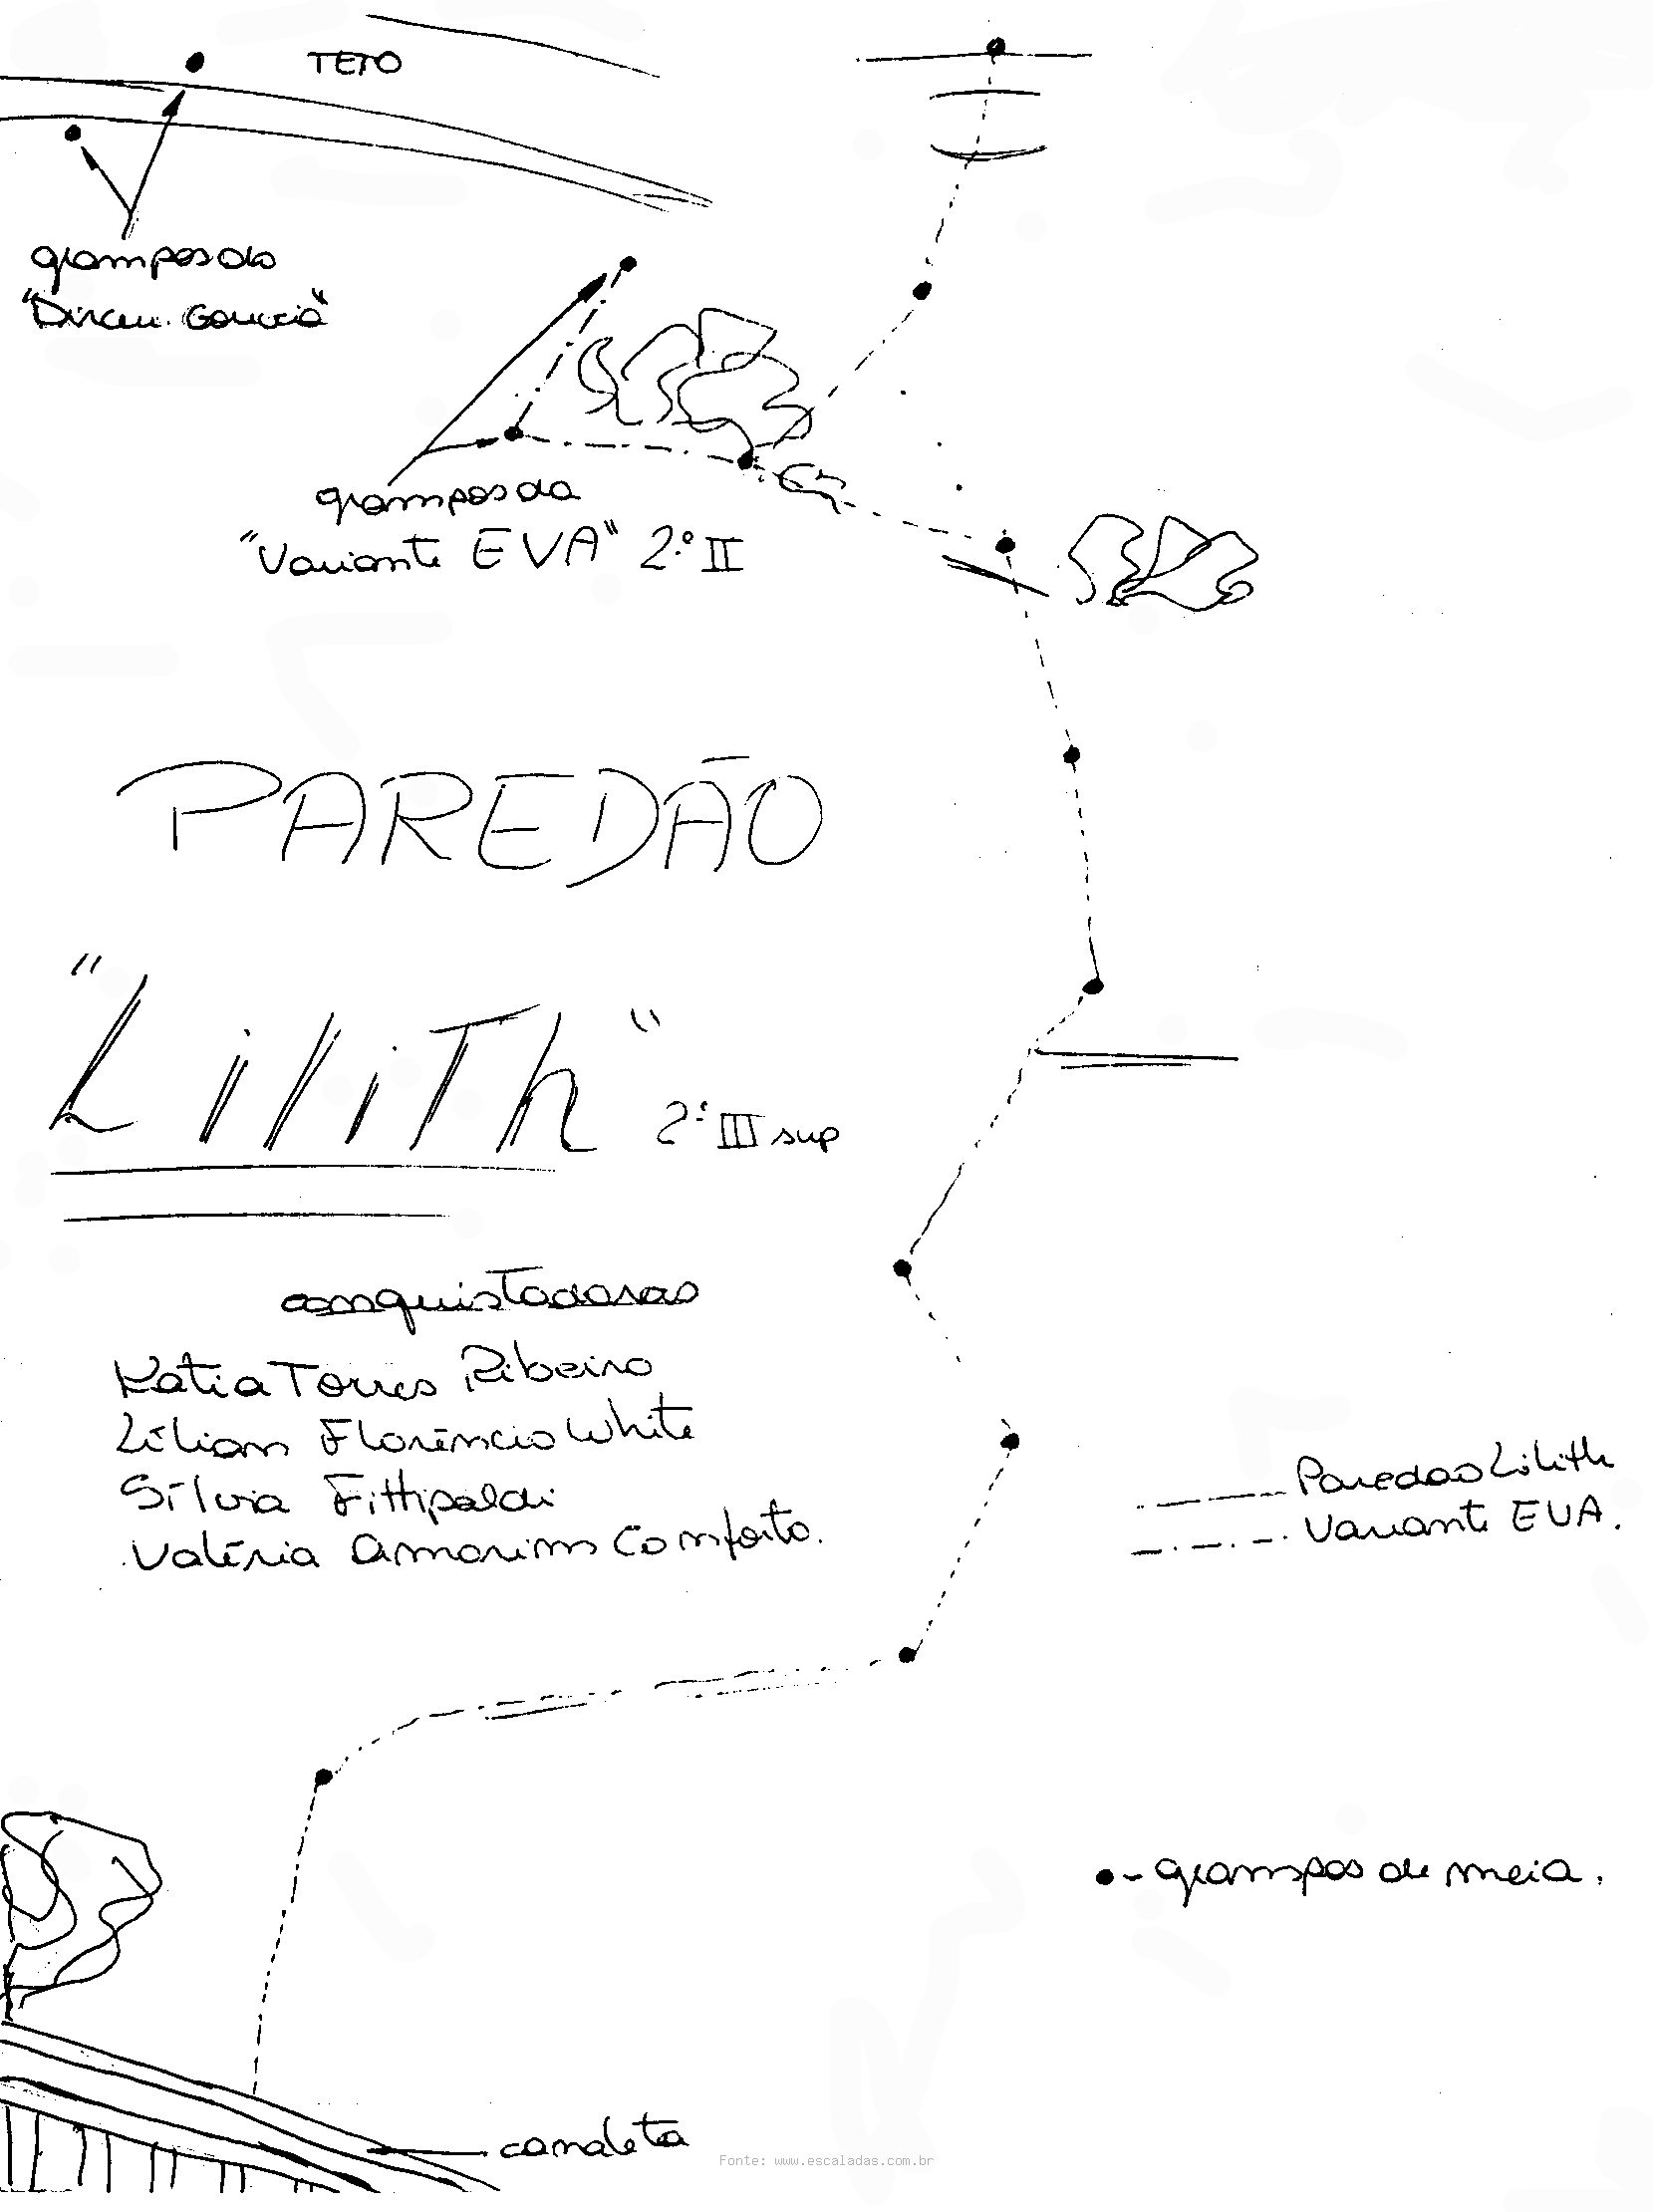 TETO
grampos da
"Dirceu Gouveia"
grampos da
"Variante EVA" 2º II
PAREDÃO
"Lilith" 2º III sup
conquistadoras
Katia Torres Ribeiro
Lílian Florêncio White
Sílvia Fittipaldi
Valéria Amorim Conforto.
Paredão Lilith
Variante EVA.
- grampos de meia.
canaleta
Fonte: www.escaladas.com.br